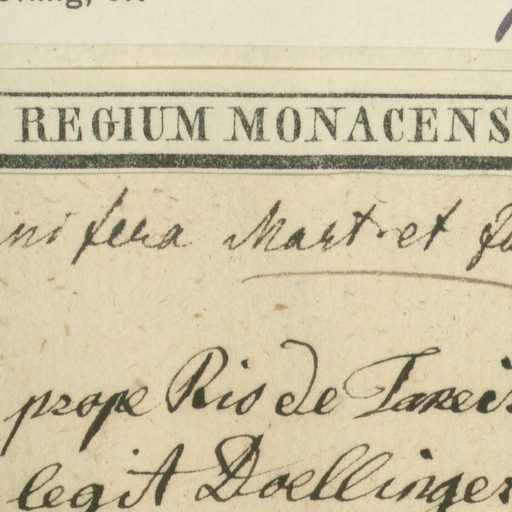 REGIUM MONACENS
inifera Mart. et
prope Rio de Janei
legit Doellinger